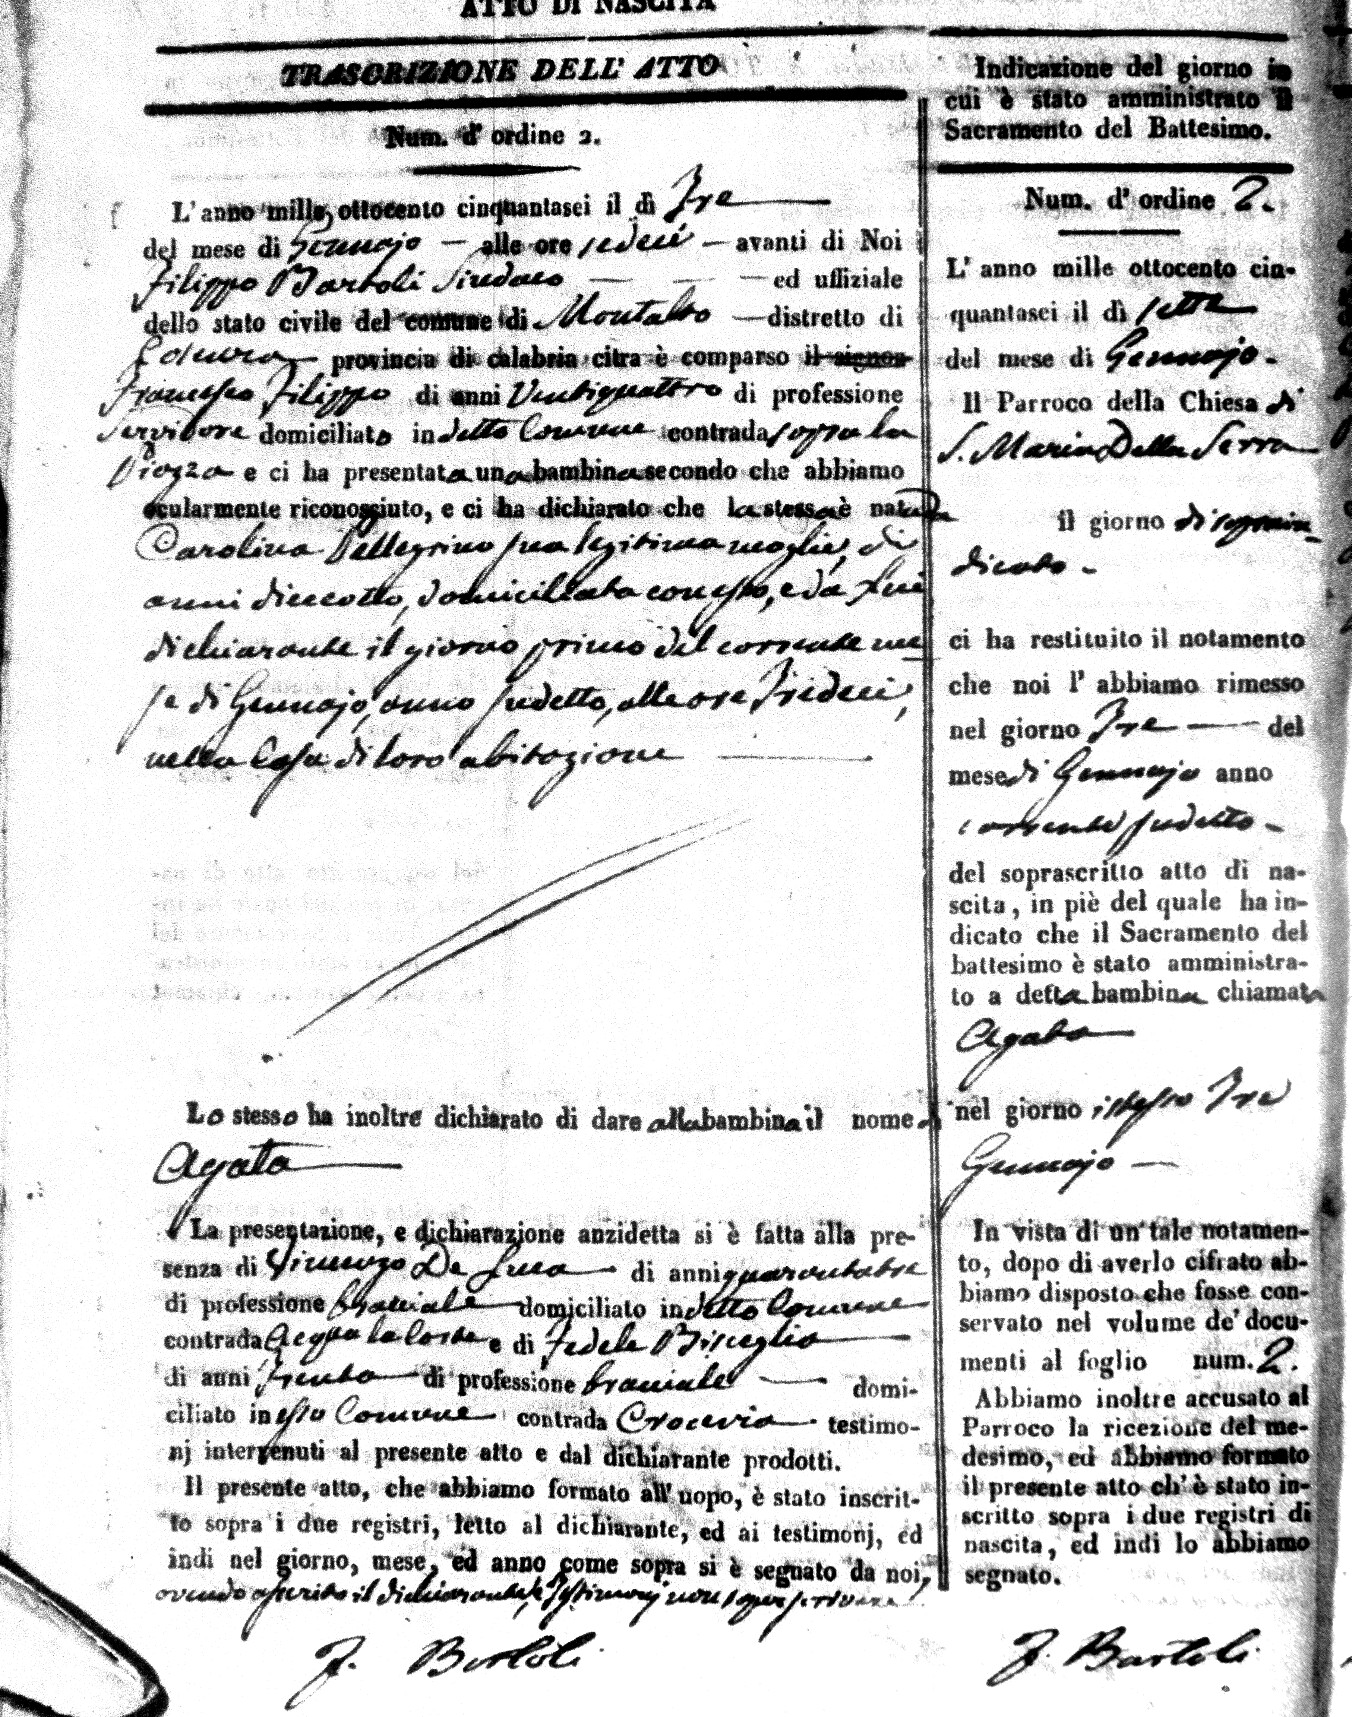 ATTO DI NASCITA
TRASCRIZIONE DELL' ATTO
Num. d' ordine 2.
L' anno mille ottocento cinquantasei il dì Tre
del mese di Gennajo — alle ore sedeci — avanti di Noi
Filippo Bartoli Sindaco — — — ed uffiziale
dello stato civile del comune di Montalto — distretto di
Cosenza provincia di calabria citra è comparso il signor
Francesco Filippo di anni Ventiquattro di professione
Servitore domiciliato in detto Comune contrada sopra la
Piazza e ci ha presentata una bambina secondo che abbiamo
ocularmente riconosciuto, e ci ha dichiarato che la stessa è nata da
Carolina Pellegrino sua legitima moglie, di
anni dieciotto, domiciliata con esso, e da lui
dichiarante il giorno primo del corrente me
se di Gennajo, anno sudetto, alle ore Tredeci,
nella Casa di loro abitazione
Lo stesso ha inoltre dichiarato di dare alla bambina il nome di
Agata
La presentazione, e dichiarazione anzidetta si è fatta alla pre-
senza di Vincenzo De Luca di anni quarantatre
di professione braciale domiciliato in detto Comune
contrada Acqua la Costa e di Fedele Bisceglia
di anni Trenta di professione braciale — domi-
ciliato in esso Comune contrada Crocevia testimo-
nj intervenuti al presente atto e dal dichiarante prodotti.
Il presente atto, che abbiamo formato all' uopo, è stato inscrit-
to sopra i due registri, letto al dichiarante, ed ai testimonj, ed
indi nel giorno, mese, ed anno come sopra si è segnato da noi,
avendo asserito il dichiarante, e Testimonj non saper scrivere
F. Bartoli
Indicazione del giorno in
cui è stato amministrato il
Sacramento del Battesimo.
Num. d' ordine 2.
L' anno mille ottocento cin-
quantasei il dì sette
del mese di Gennajo -
Il Parroco della Chiesa di
S. Maria Della Serra
il giorno di sopra in-
dicato -
ci ha restituito il notamento
che noi l' abbiamo rimesso
nel giorno Tre — del
mese di Gennajo anno
corrente sudetto -
del soprascritto atto di na-
scita, in piè del quale ha in-
dicato che il Sacramento del
battesimo è stato amministra-
to a detta bambina chiamata
Agata
nel giorno istesso Tre
Gennajo —
In vista di un tale notamen-
to, dopo di averlo cifrato ab-
biamo disposto che fosse con-
servato nel volume de' docu-
menti al foglio num. 2.
Abbiamo inoltre accusato al
Parroco la ricezione del me-
desimo, ed abbiamo formato
il presente atto ch' è stato in-
scritto sopra i due registri di
nascita, ed indi lo abbiamo
segnato.
F. Bartoli